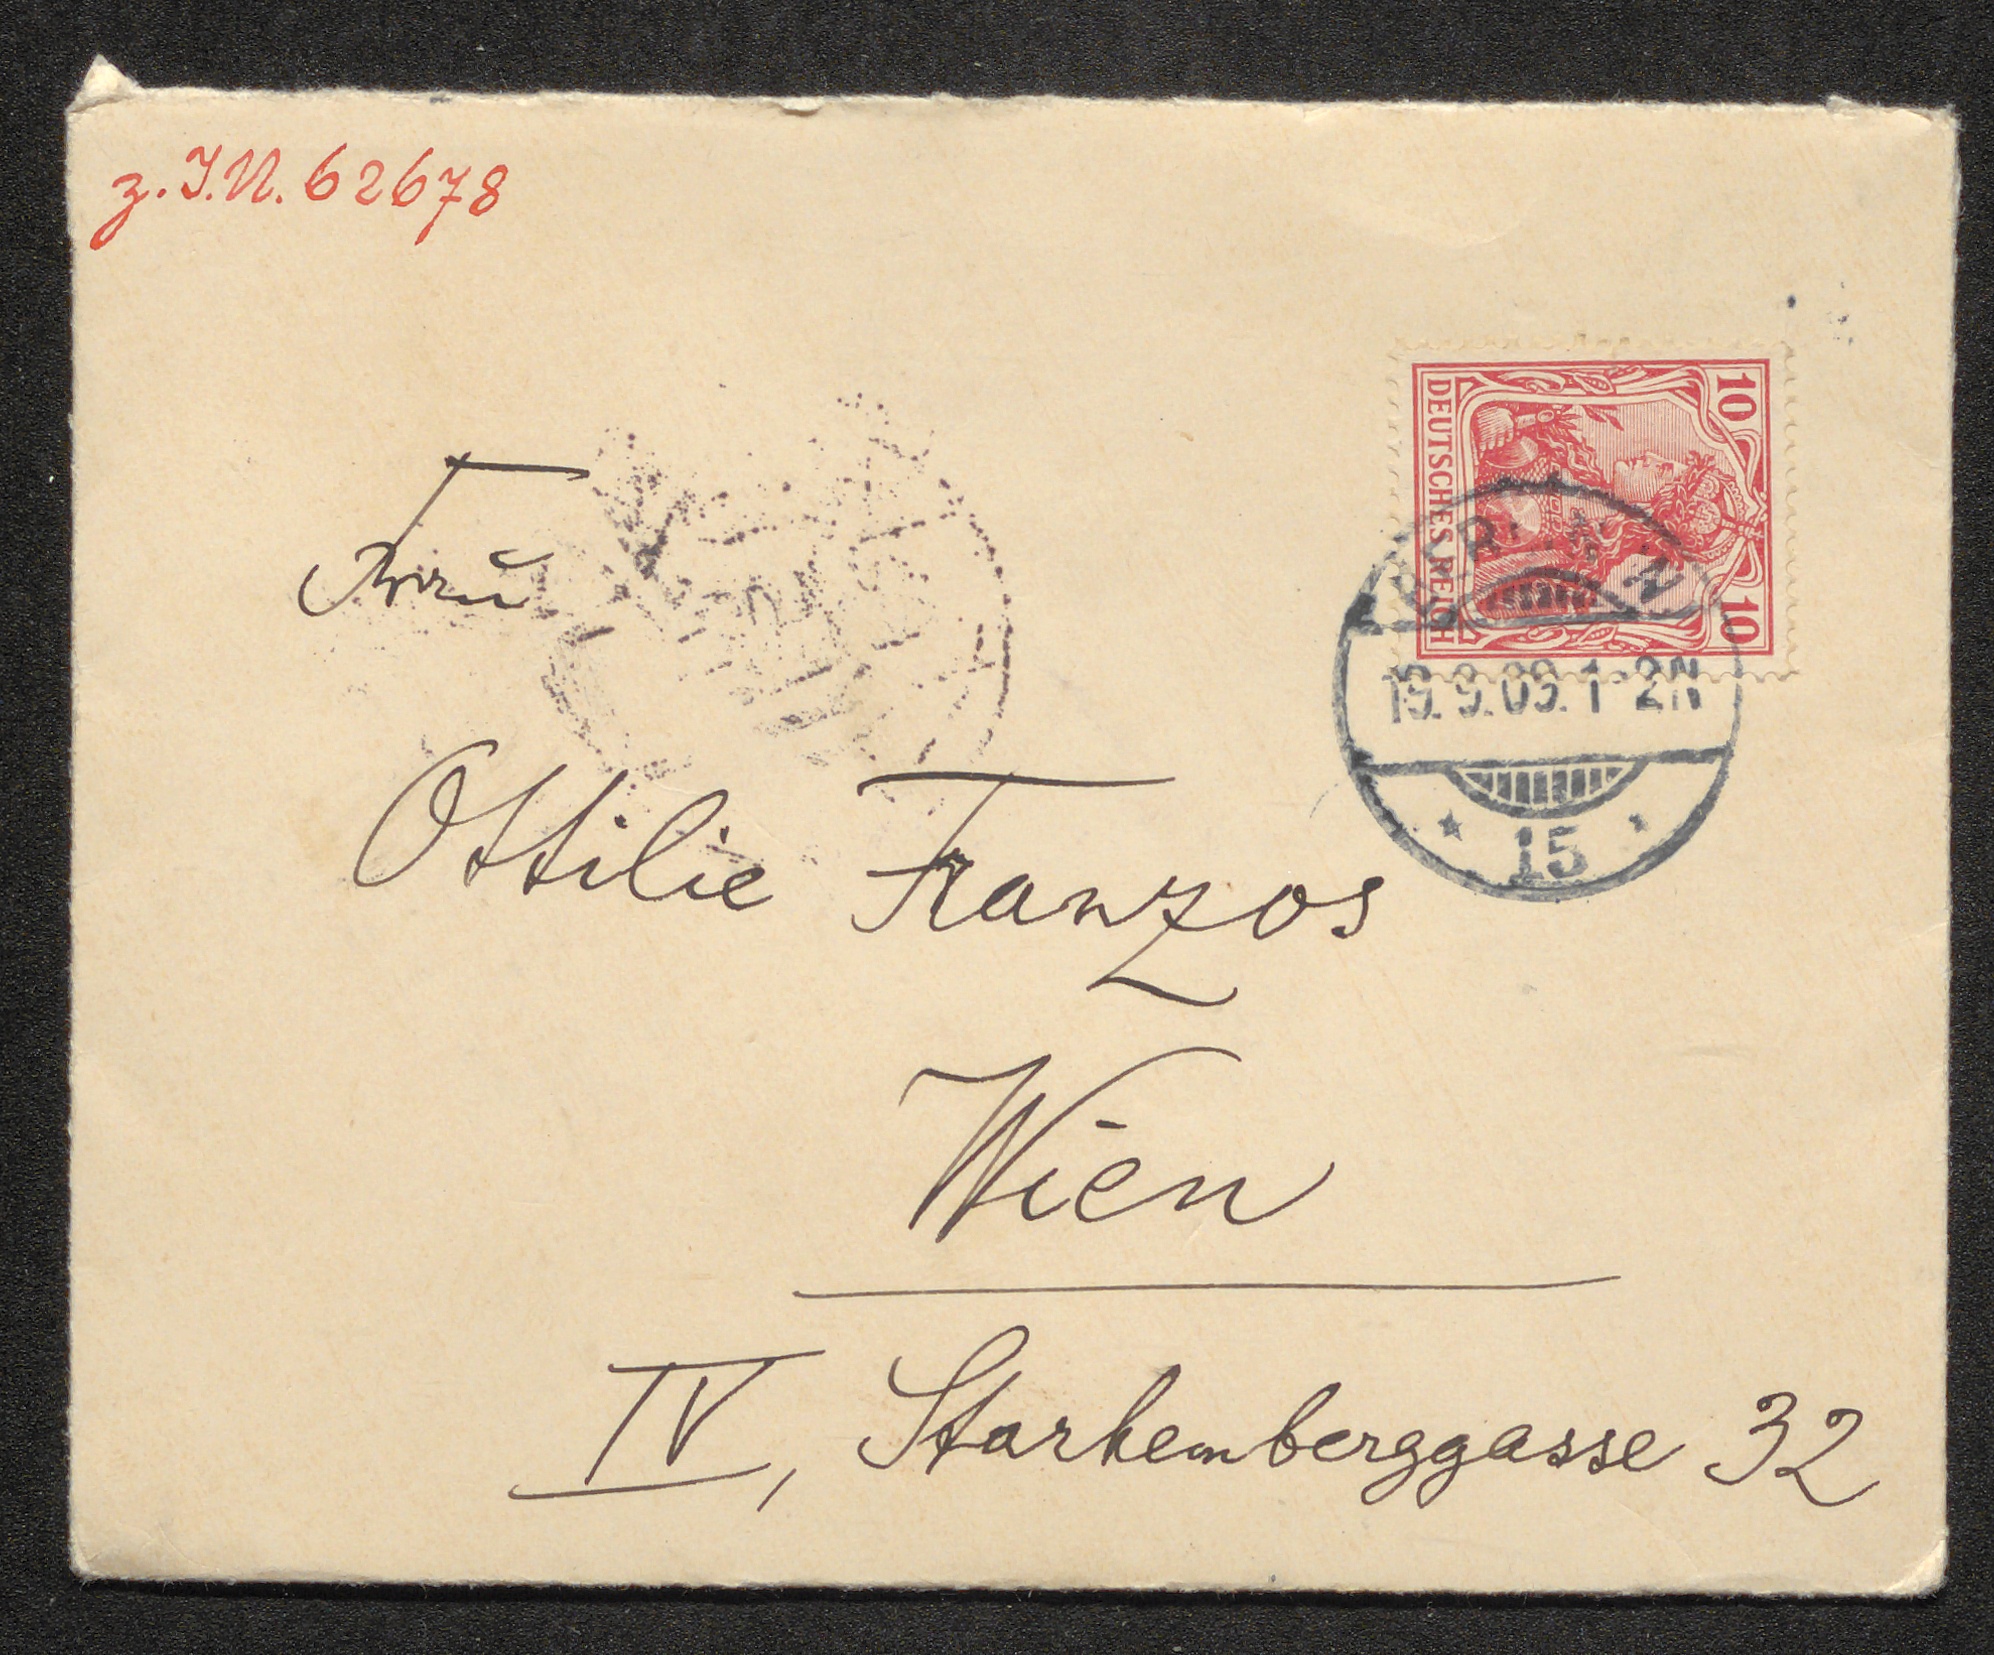 z. I.N. 62678
10
10
DEUTSCHES REICH
BERLIN
19.9.09. 1-2N
* 15 *
Frau
Ottilie Franzos
Wien
IV, Starhemberggasse 32